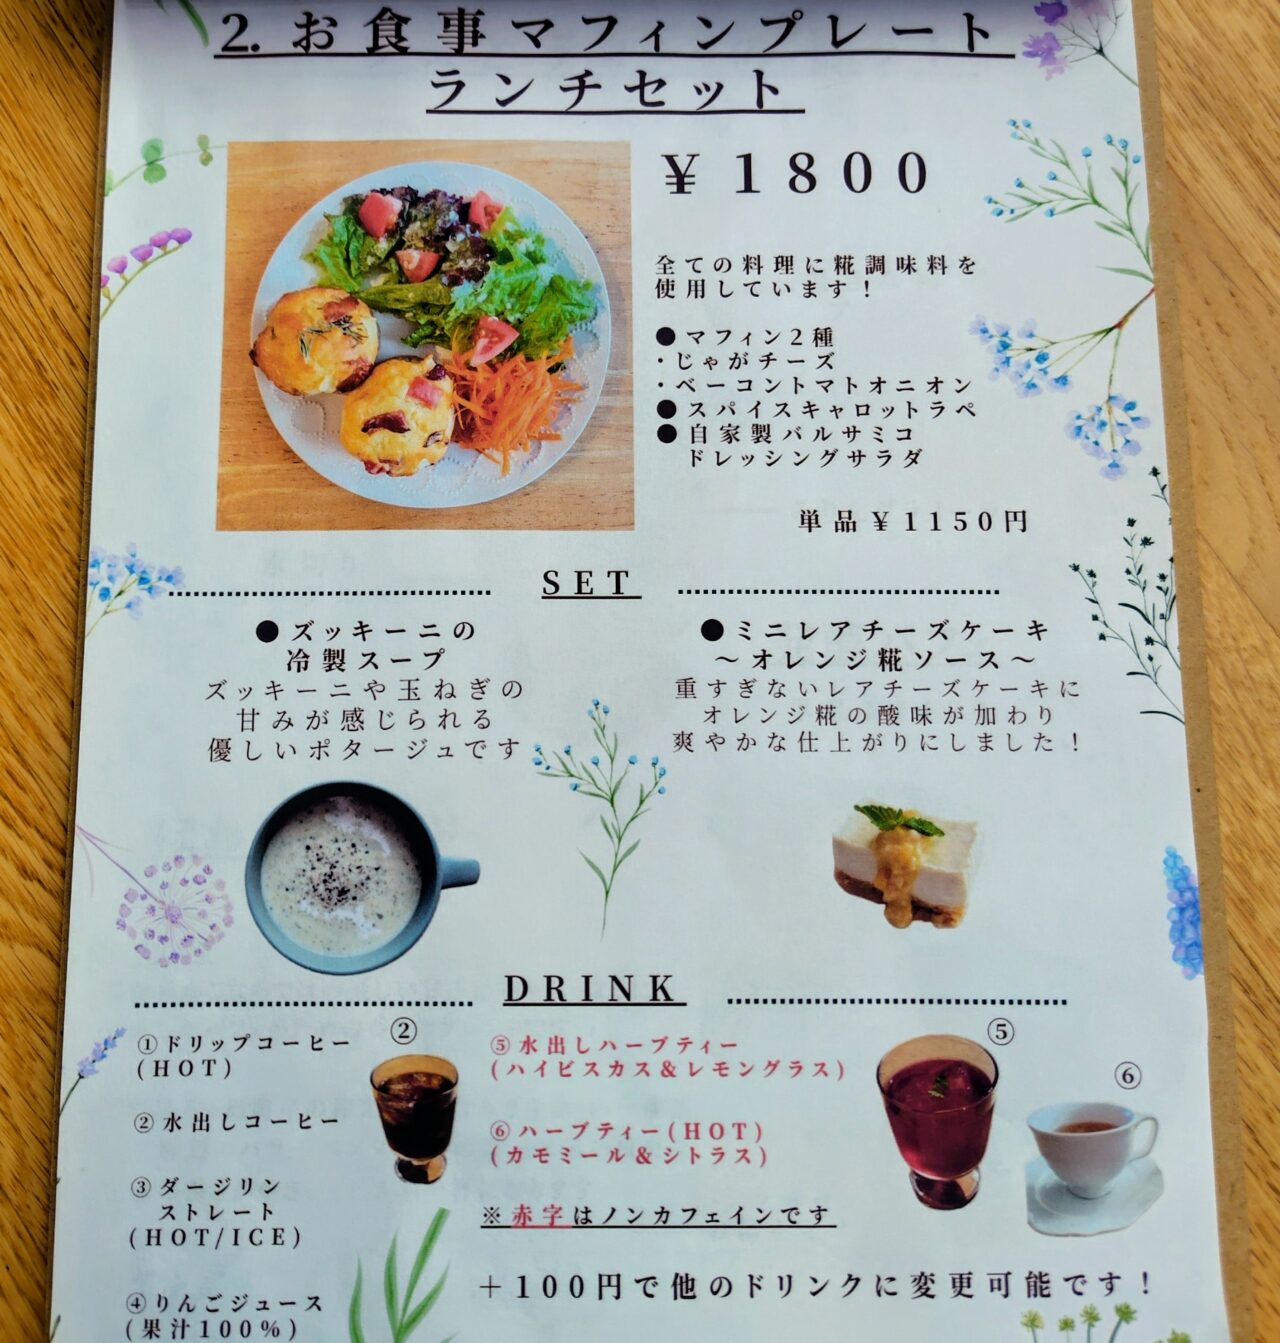 2. お食事マフィンプレート
ランチセット
¥1800
全ての料理に糀調味料を
使用しています！
●マフィン2種
・じゃがチーズ
・ベーコントマトオニオン
●スパイスキャロットラペ
●自家製バルサミコ
ドレッシングサラダ
単品¥1150円
SET
●ズッキーニの
冷製スープ
ズッキーニや玉ねぎの
甘みが感じられる
優しいポタージュです
●ミニレアチーズケーキ
～オレンジ糀ソース～
重すぎないレアチーズケーキに
オレンジ糀の酸味が加わり
爽やかな仕上がりにしました！
DRINK
①ドリップコーヒー
(HOT)
②水出しコーヒー
③ダージリン
ストレート
(HOT/ICE)
④りんごジュース
(果汁100%)
②
⑤水出しハーブティー
(ハイビスカス＆レモングラス)
⑥ハーブティー(HOT)
(カモミール＆シトラス)
⑤
⑥
※赤字はノンカフェインです
＋100円で他のドリンクに変更可能です！